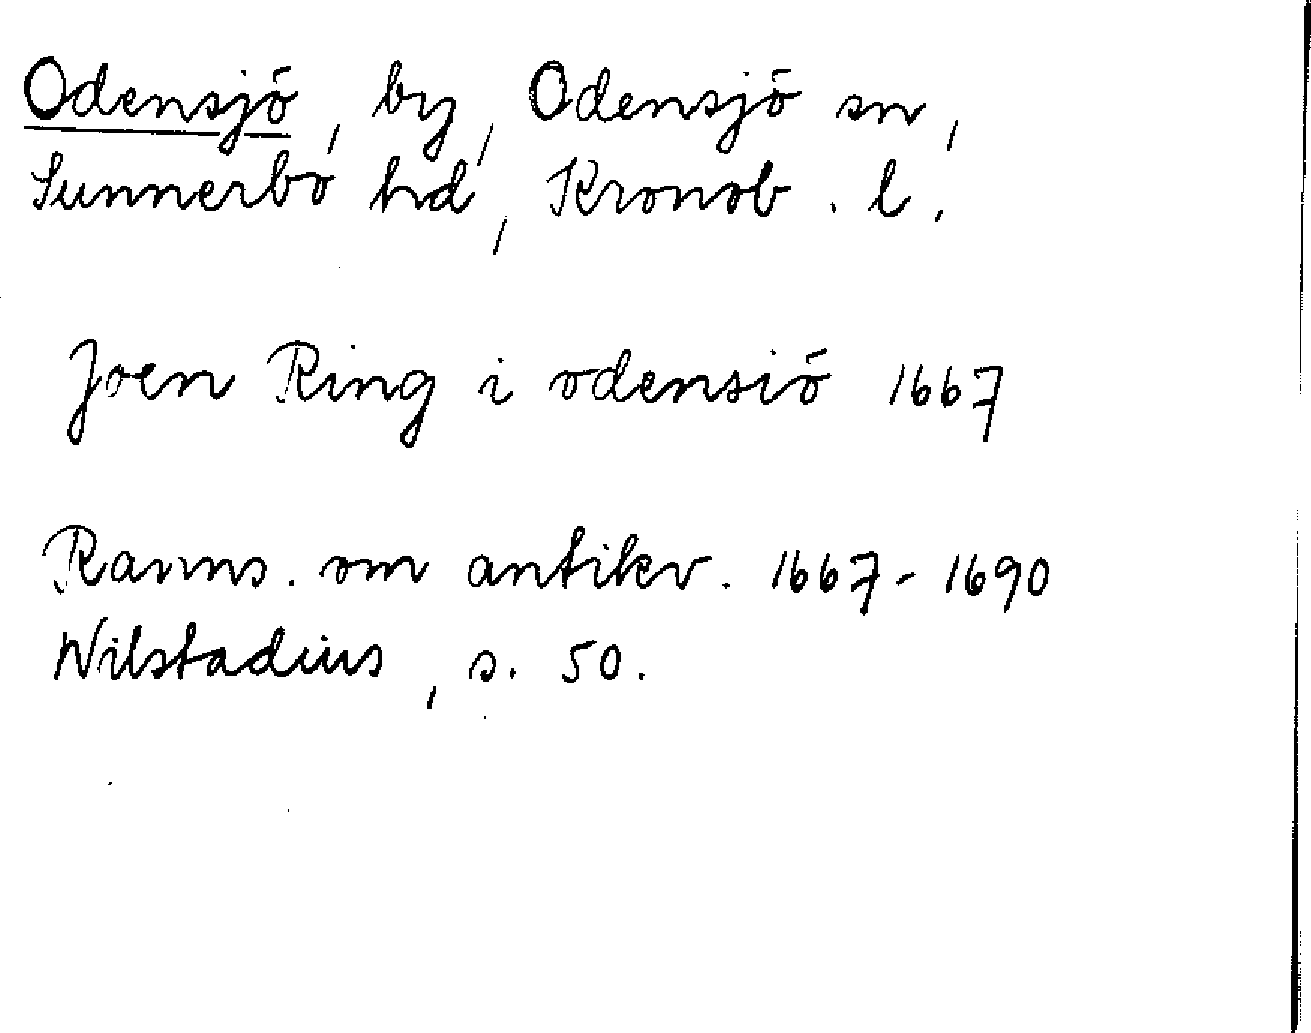 Odensjö, by, Odensjö sn,
Sunnerbo hd, Kronob. l.
Joen Ring i odensiö 1667
Ranns. om antikv. 1667-1690
Wilstadius, s. 50.